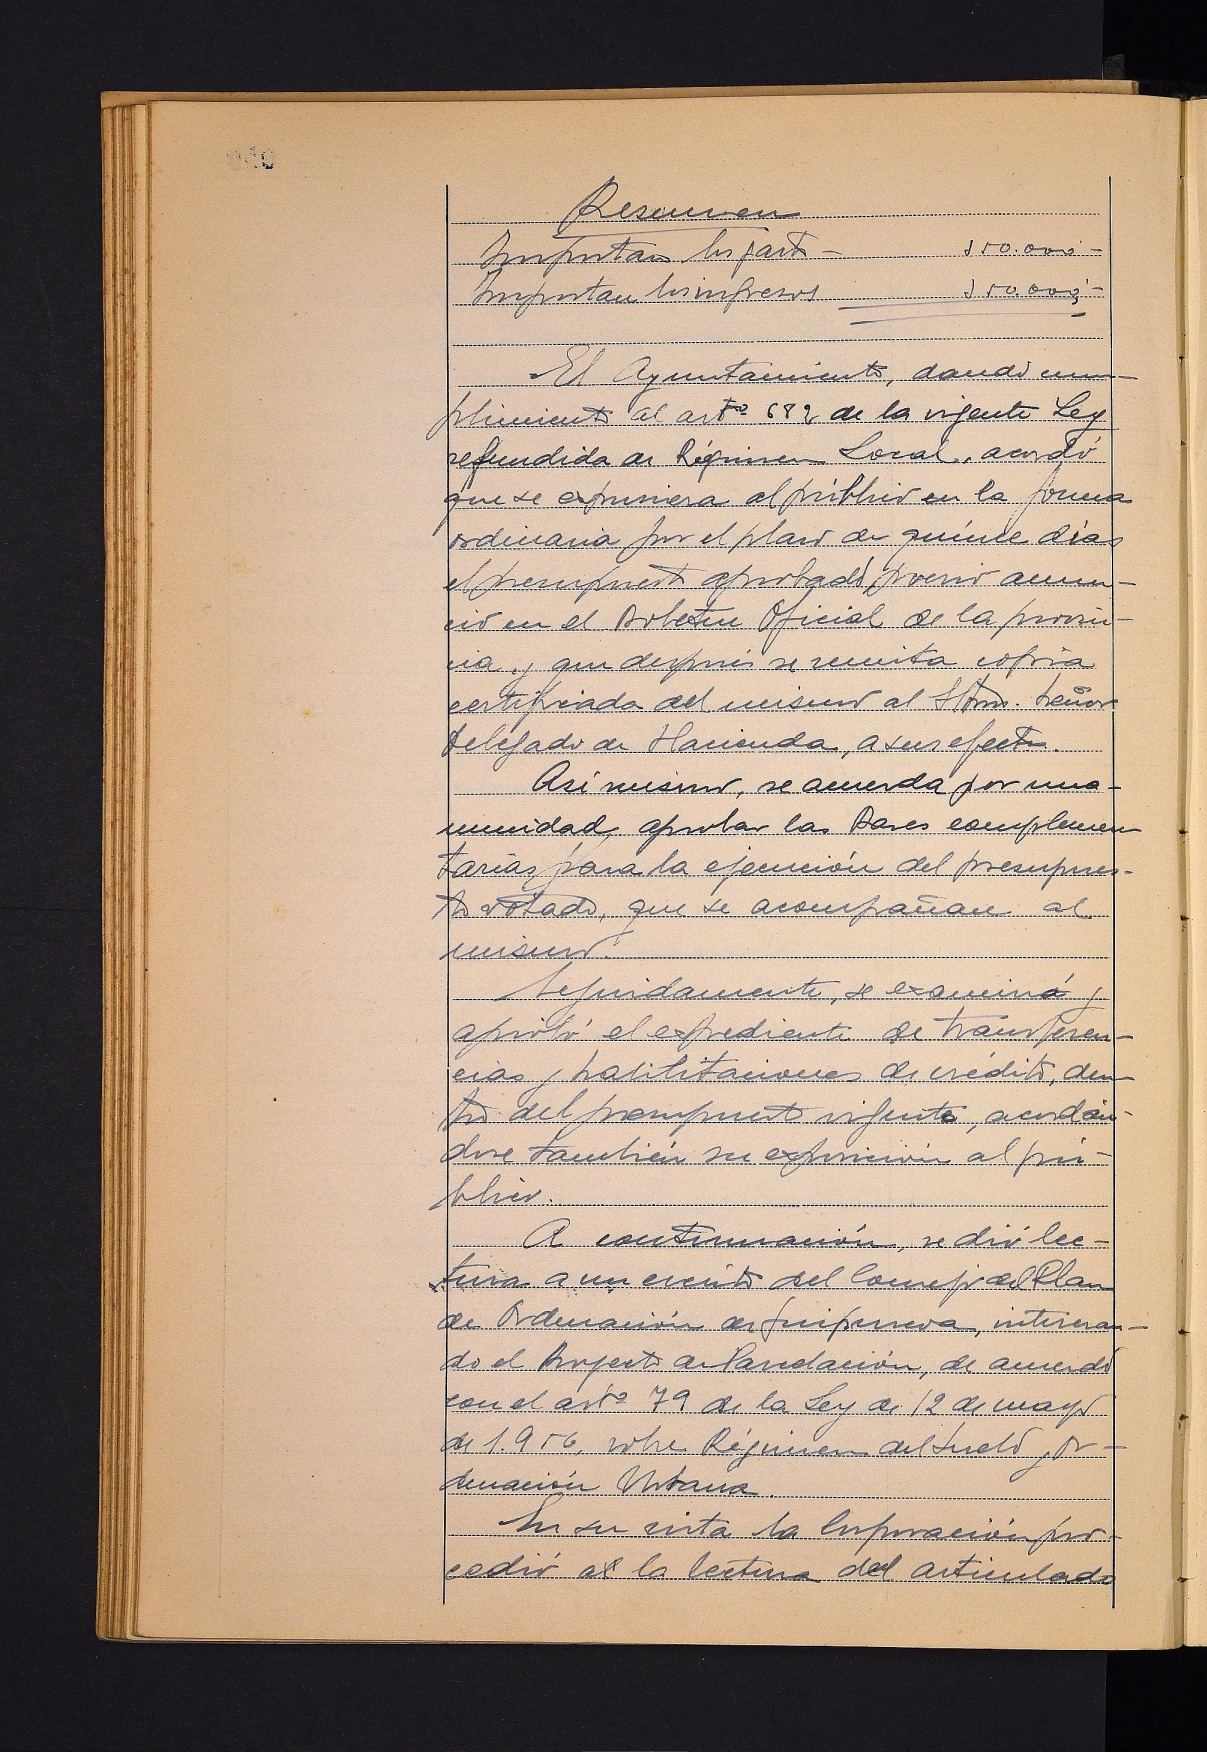 Resumen
Importan los gastos — 150.000,—
Importan los ingresos 150.000,—
El Ayuntamiento, dando cum-
plimiento al artº 682 de la vigente Ley
refundida de Régimen Local, acordó
que se expusiera al público en la forma
ordinaria por el plazo de quince días
el presupuesto aprobado, previo anun-
cio en el Boletín Oficial de la provin-
cia, y que después se remita copia
certificada del mismo al Iltmo. Señor
Delegado de Hacienda, a sus efectos.
Asi mismo, se acuerda por una-
nimidad, aprobar las Bases complemen-
tarias para la ejecución del presupues-
to votado, que se acompañan al
mismo.
Seguidamente, se examinó y
aprobó el expediente de transferen-
cias y habilitaciones de crédito, den-
tro del presupuesto vigente, acordán-
dose también su exposición al pú-
blico.
A continuación, se dió lec-
tura a un escrito del Consejo del Plan
de Ordenación de Guipuzcoa, interesan-
do el Proyecto de Parcelación, de acuerdo
con el artº 79 de la Ley de 12 de mayo
de 1.956, sobre Régimen del Suelo y Or-
denación Urbana.
En su vista la Corporación pro-
cedió a la lectura del articulado